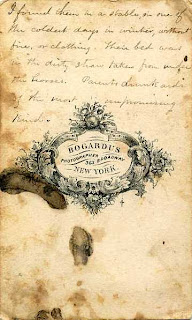 I found them in a stable on one of
the coldest days in winter, without
fire, or clothing. Their bed was
the dirty straw taken from under
the horses. Parents drunkards
of the most unpromising
kind.
BOGARDUS
PHOTOGRAPHER
363 BROADWAY
NEW YORK